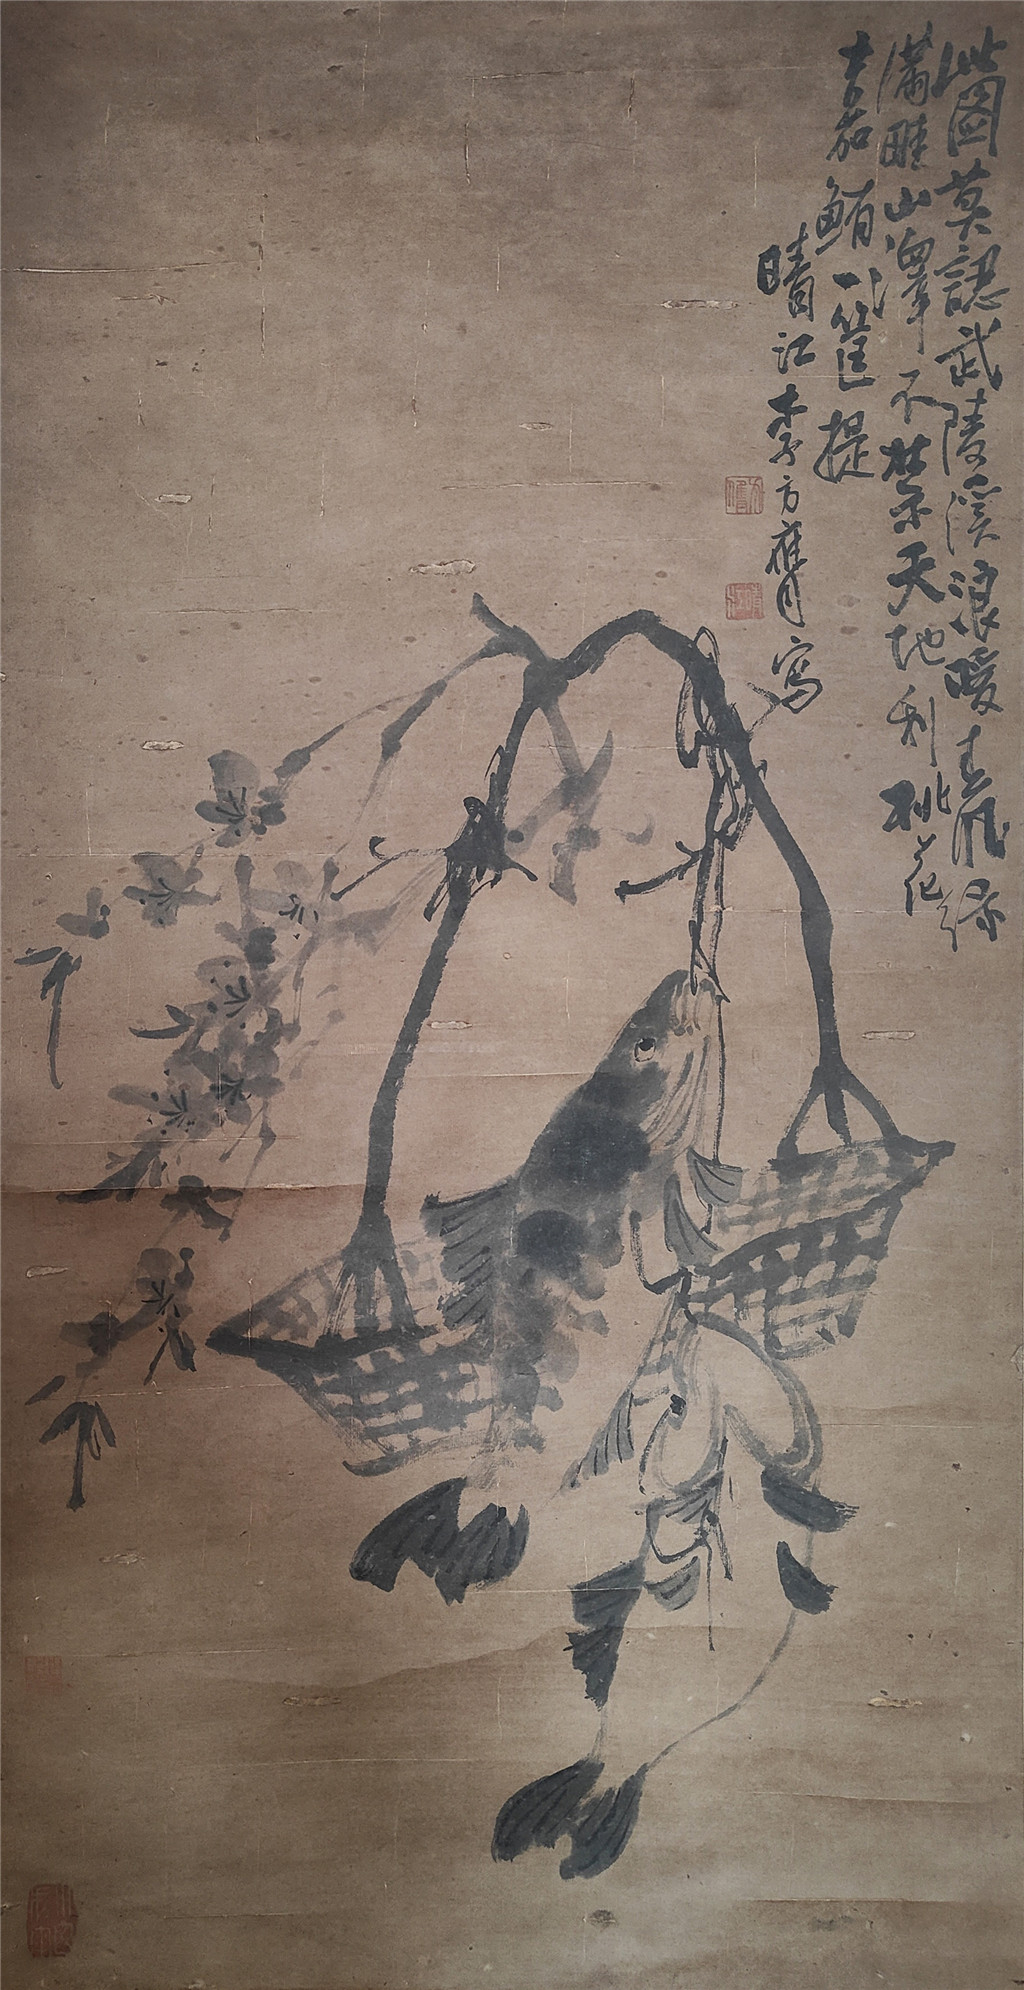 此圖莫認武陵溪浪暖春風綠
滿畦山澤不禁天地利桃花
嘉鮪一筐提
晴江李方膺寫